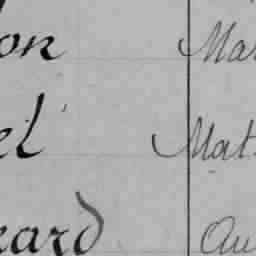 on Mar
el Mat
eard Au